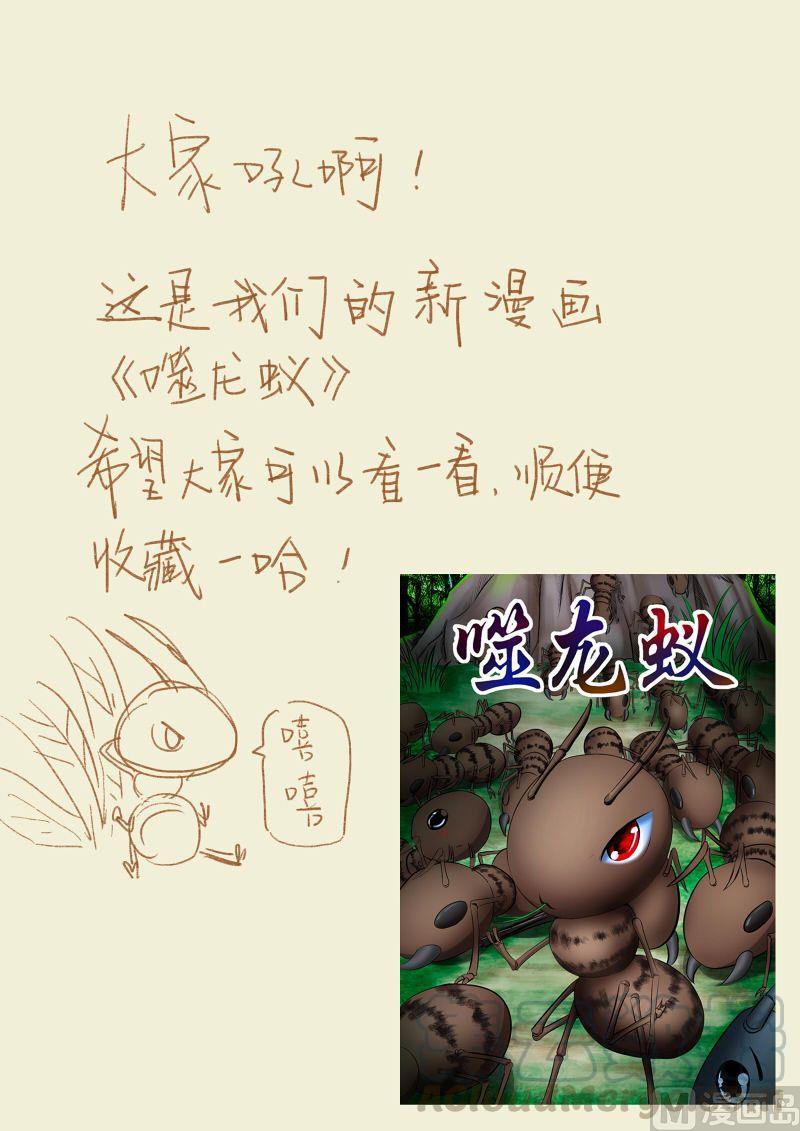 大家吼啊！
这是我们的新漫画
《噬龙蚁》
希望大家可以看一看，顺便
收藏一哈！
噬龙蚁
嘻
嘻
漫画岛